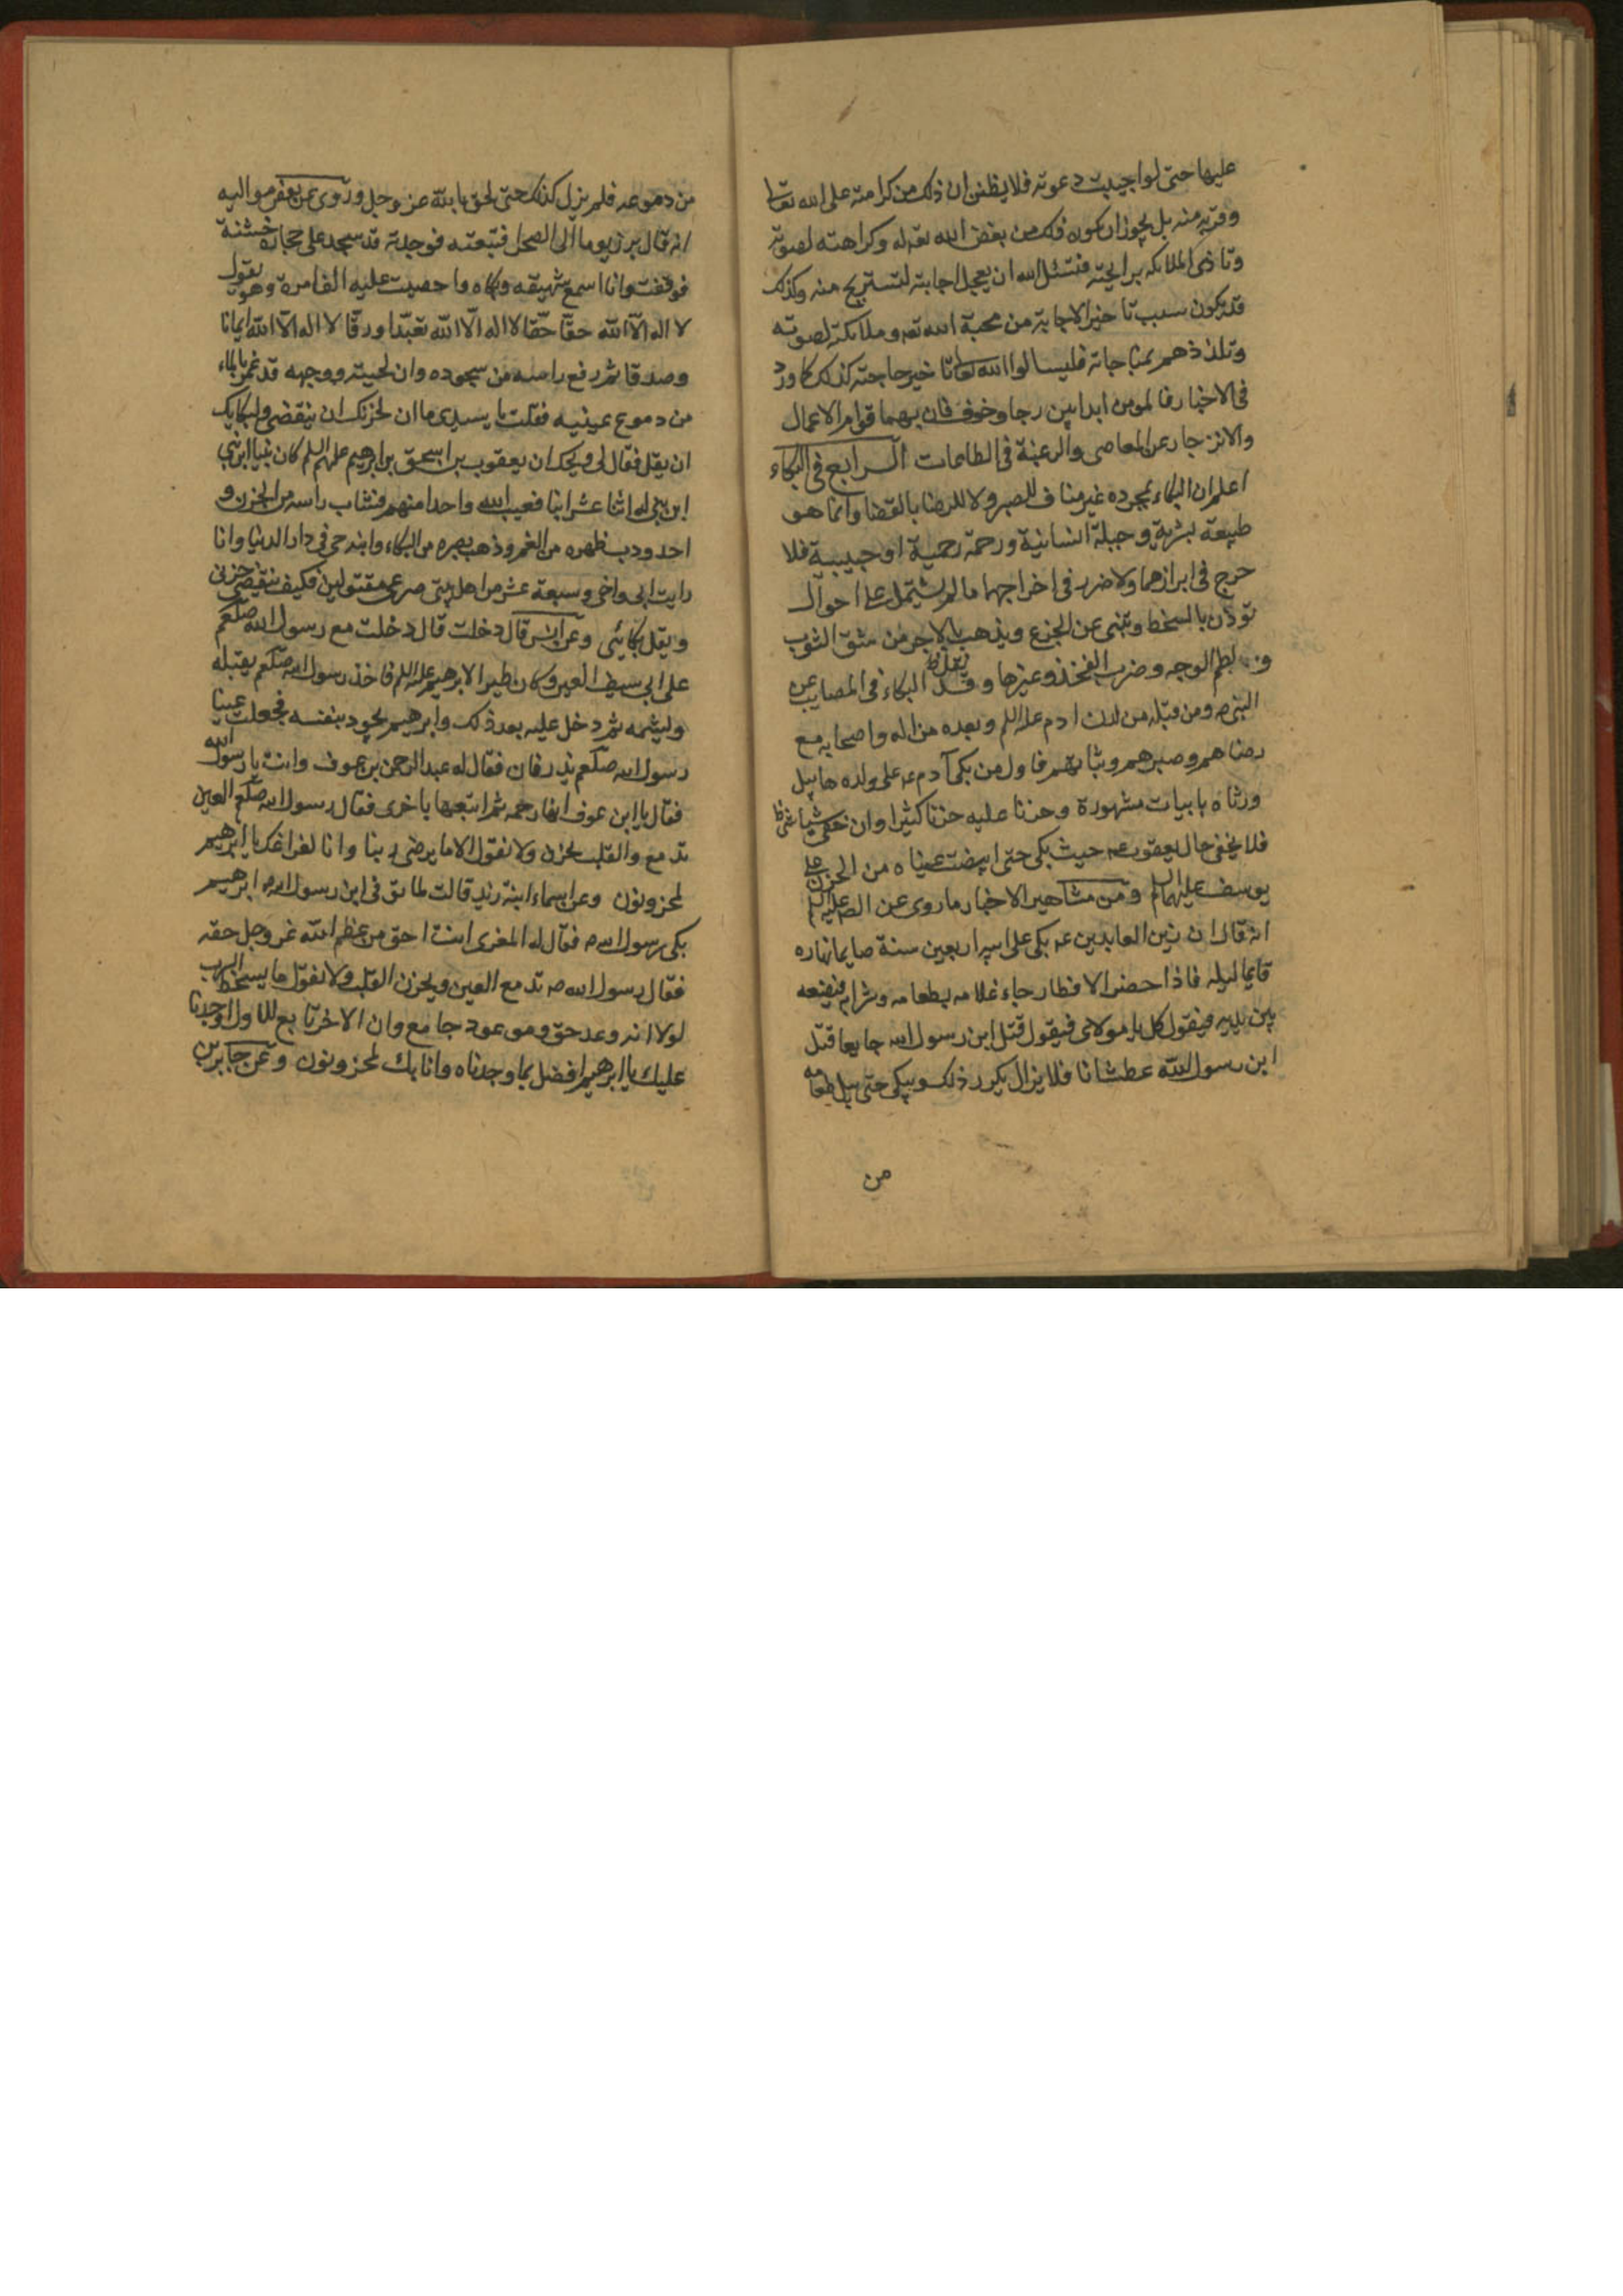 عليها حتى لو اجيبت دعوته فلا يظنن ان ذلك من كرامته على الله تعالى
وقربه منه بل يجوز ان يكون ذلك من بغض الله تعه له وكراهته لصوته
وتاذى الملائكه برايحته فتسئل الله ان يعجل اجابته لتستريح منه وكذلك
قد يكون سبب تاخير الاجابة من محبة الله تعه وملائكته لصوته
وتلذذهم بمناجاته فليسالوا الله تعالى تاخير حاجته كذلك كما ورد
فى الاخبار فالمومن ابدا بين رجا وخوف فان بهما قوام الاعمال
والانزجار عن المعاصى والرغبة فى الطاعات الرابع فى البكاء
اعلم ان البكاء بمجرده غير مناف للصبر ولا للرضا بالقضا وانما هو
طبيعة بشرية وجبلة انسانية ورحمة رحمية او حبيبية فلا
حرج فى ابرازهما ولا ضرر فى اخراجهما ما لم يشتمل على احوال
توذن بالسخط وتنبى عن الجزع ويذهب بالاجر من شق الثوب
و لطم الوجه وضرب الفخذ وغيرها وقد البكاء فى المصايب عن
النبى ص ومن قبله من لدن ادم عليه السلم وبعده من اله واصحابه مع
رضاهم وصبرهم وثباتهم فاول من بكى آدم عه على ولده هابيل
ورثاه بابيات مشهورة وحزنا عليه حزنا كثيرا وان خفى شيا
فلا يخفى حال يعقوب عه حيث بكى حتى ابيضت عيناه من الحزن على
يوسف عليهما السلم ومن مشاهير الاخبار ما روى عن الص عليه السلم
انه قال ان زين العابدين عه بكى على ابيه اربعين سنة صايما نهاره
قايما ليله فاذا حضر الافطار جاء غلامه بطعامه وشرابه فيضعه
بين يديه فيقول كل يا مولاى فيقول قتل ابن رسول الله جايعا قتل
ابن رسول الله عطشانا فلا يزال يكرر ذلك ويبكى حتى يبل طعامه
من
من دموعه فلم يزل كذلك حتى لحق بالله عز وجل وروى عن بعض مواليه
انه قال برز يوما الى الصحرا فتبعته فوجدته قد سجد على حجارة خشنة
فوقفت وانا اسمع شهيقه وبكاه واحصيت عليه الف مرة وهو يقول
لا اله الا الله حقا حقا لا اله الا الله تعبدا ورقا لا اله الا الله ايمانا
وصدقا ثم رفع راسه من سجوده وان لحيته ووجهه قد غمر بالماء
من دموع عينيه فقلت يا سيدى ما ان لحزنك ان ينقضى ولبكايك
ان يقل فقال لى ويحك ان يعقوب بن اسحق بن ابرهيم عليهم السلم كان نبيا ابن نبى
ابن نبى له اثنا عشر ابنا فغيب الله واحدا منهم فشاب راسه من الحزن و
احدودب ظهره من الغم وذهب بصره من البكاء وابنه حى فى دار الدنيا وانا
رايت ابى واخى وسبعة عشر من اهل بيتى صرعى مقتولين فكيف ينقضى حزنى
ويقل بكائى وعن انس قال دخلت قال دخلت مع رسول الله صلعم
على ابى سيف العين وكان ظيرا لابرهيم عليه السلم فاخذ رسول الله صلعم يقبله
وليشمه ثم دخل عليه بعد ذلك وابرهيم يجود بنفسه فجعلت عينا
رسول الله صلعم يذرفان فقال له عبد الرحمن بن عوف وانت يا رسول الله
فقال يا ابن عوف انها رحمه ثم اتبعها باخرى فقال رسول الله صلعم العين
تدمع والقلب يحزن ولا نقول الا ما يرضى ربنا وانا لفراغك يا ابرهيم
لمحزونون وعن اسماء ابنة زيد قالت لما توفى ابن رسول الله ص ابرهيم
بكى رسول الله ص فقال له المعزى انت احق من عظم الله عز وجل حقه
فقال رسول الله ص تدمع العين ويحزن القلب ولا نقول ما يسخط الرب
لولا انه وعد حق وموعود جامع وان الاخر تابع للاول لوجدنا
عليك يا ابرهيم افضل بما وجدناه وانا بك لمحزونون وعن جابر بن